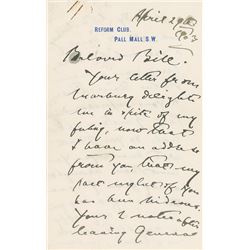 April 29th
REFORM CLUB,
PALL MALL. S.W.
Beloved Bill.
Your letter from
delights
me in spite of my
feeling, now that
I have an address
from you, that my
past neglect of you
has been hideous.
Yours 2 notes after
leaving General